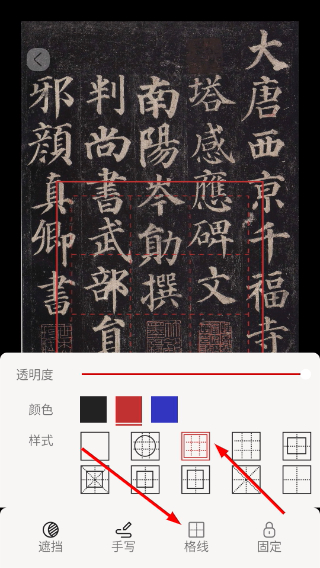 大唐西京千福寺
塔感應碑文
南陽岑勛撰
判尚書武部員
邪顏真卿書
透明度
颜色
样式
遮挡
手写
格线
固定